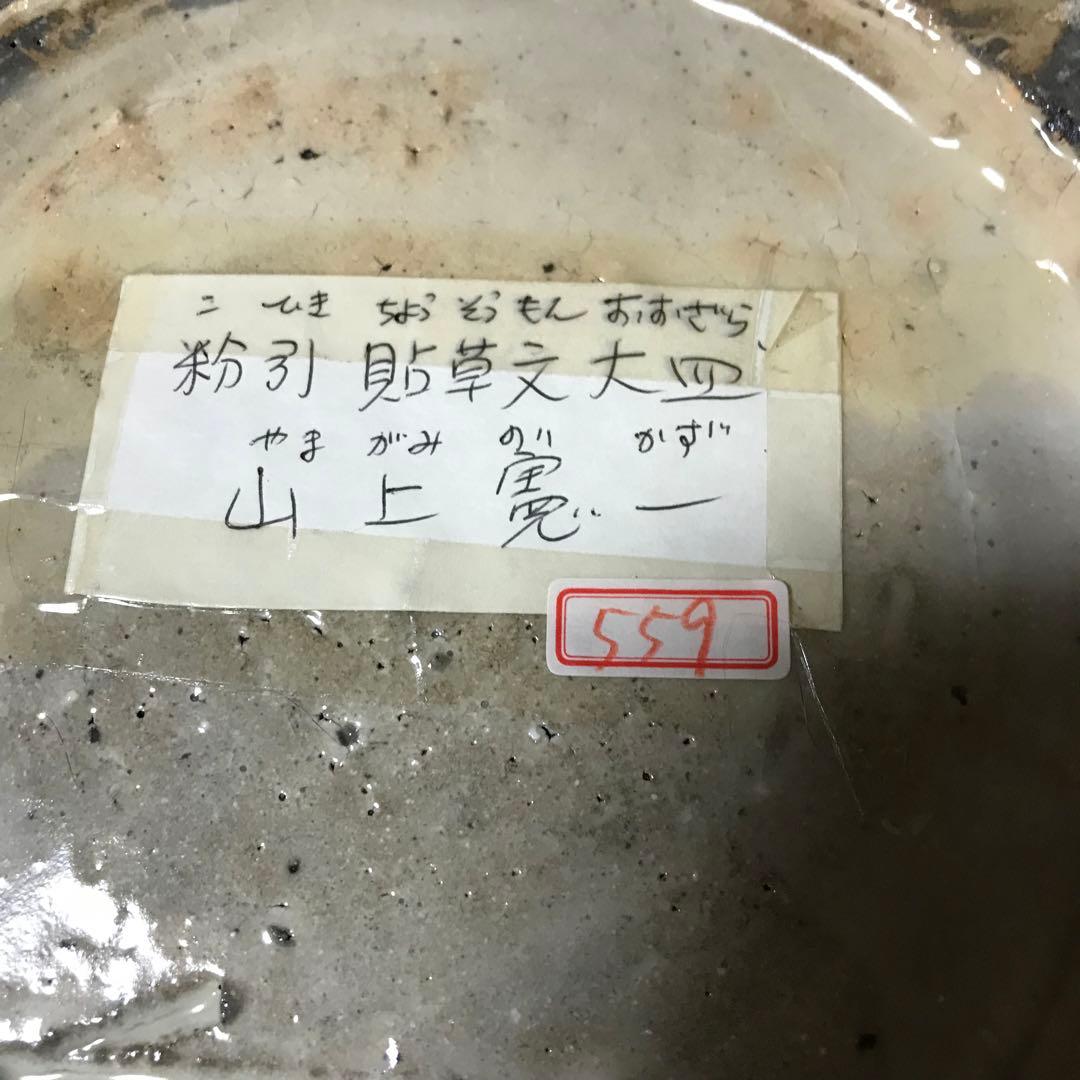 こ ひき ちょう そう もん おおざら
粉引 貼草文大皿
やま がみ のり かず
山 上 憲 一
559